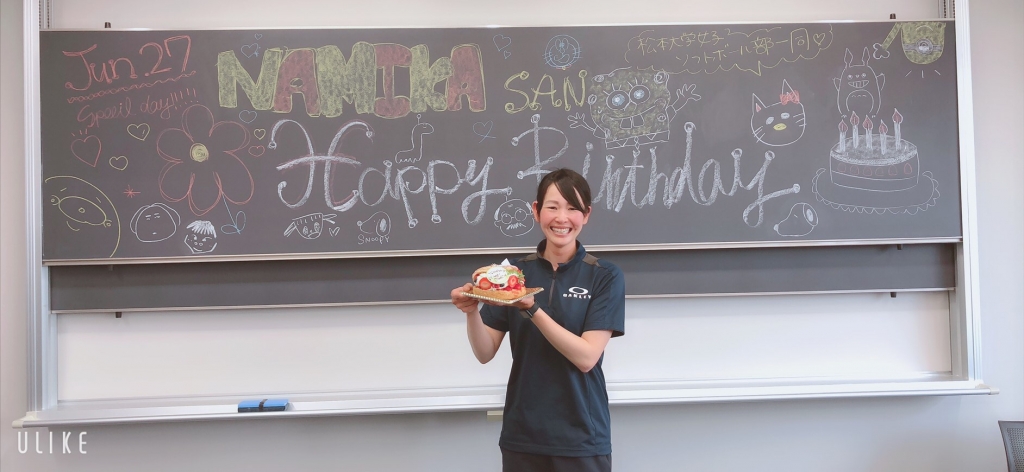 Jun. 27
Special day!!!!
NAMIKA
SAN
松本大学女子
ソフトボール部一同♡
Happy Birthday
SNOOPY
OAKLEY
ULIKE